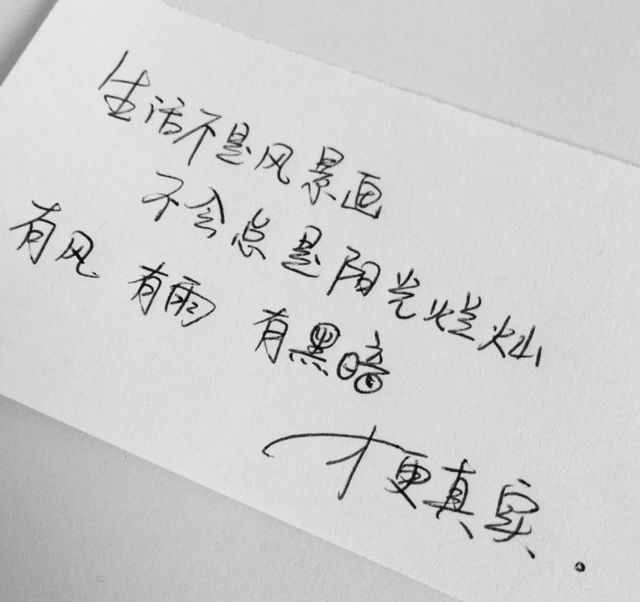 生活不是风景画
不会总是阳光灿烂
有风 有雨 有黑暗
才更真实。